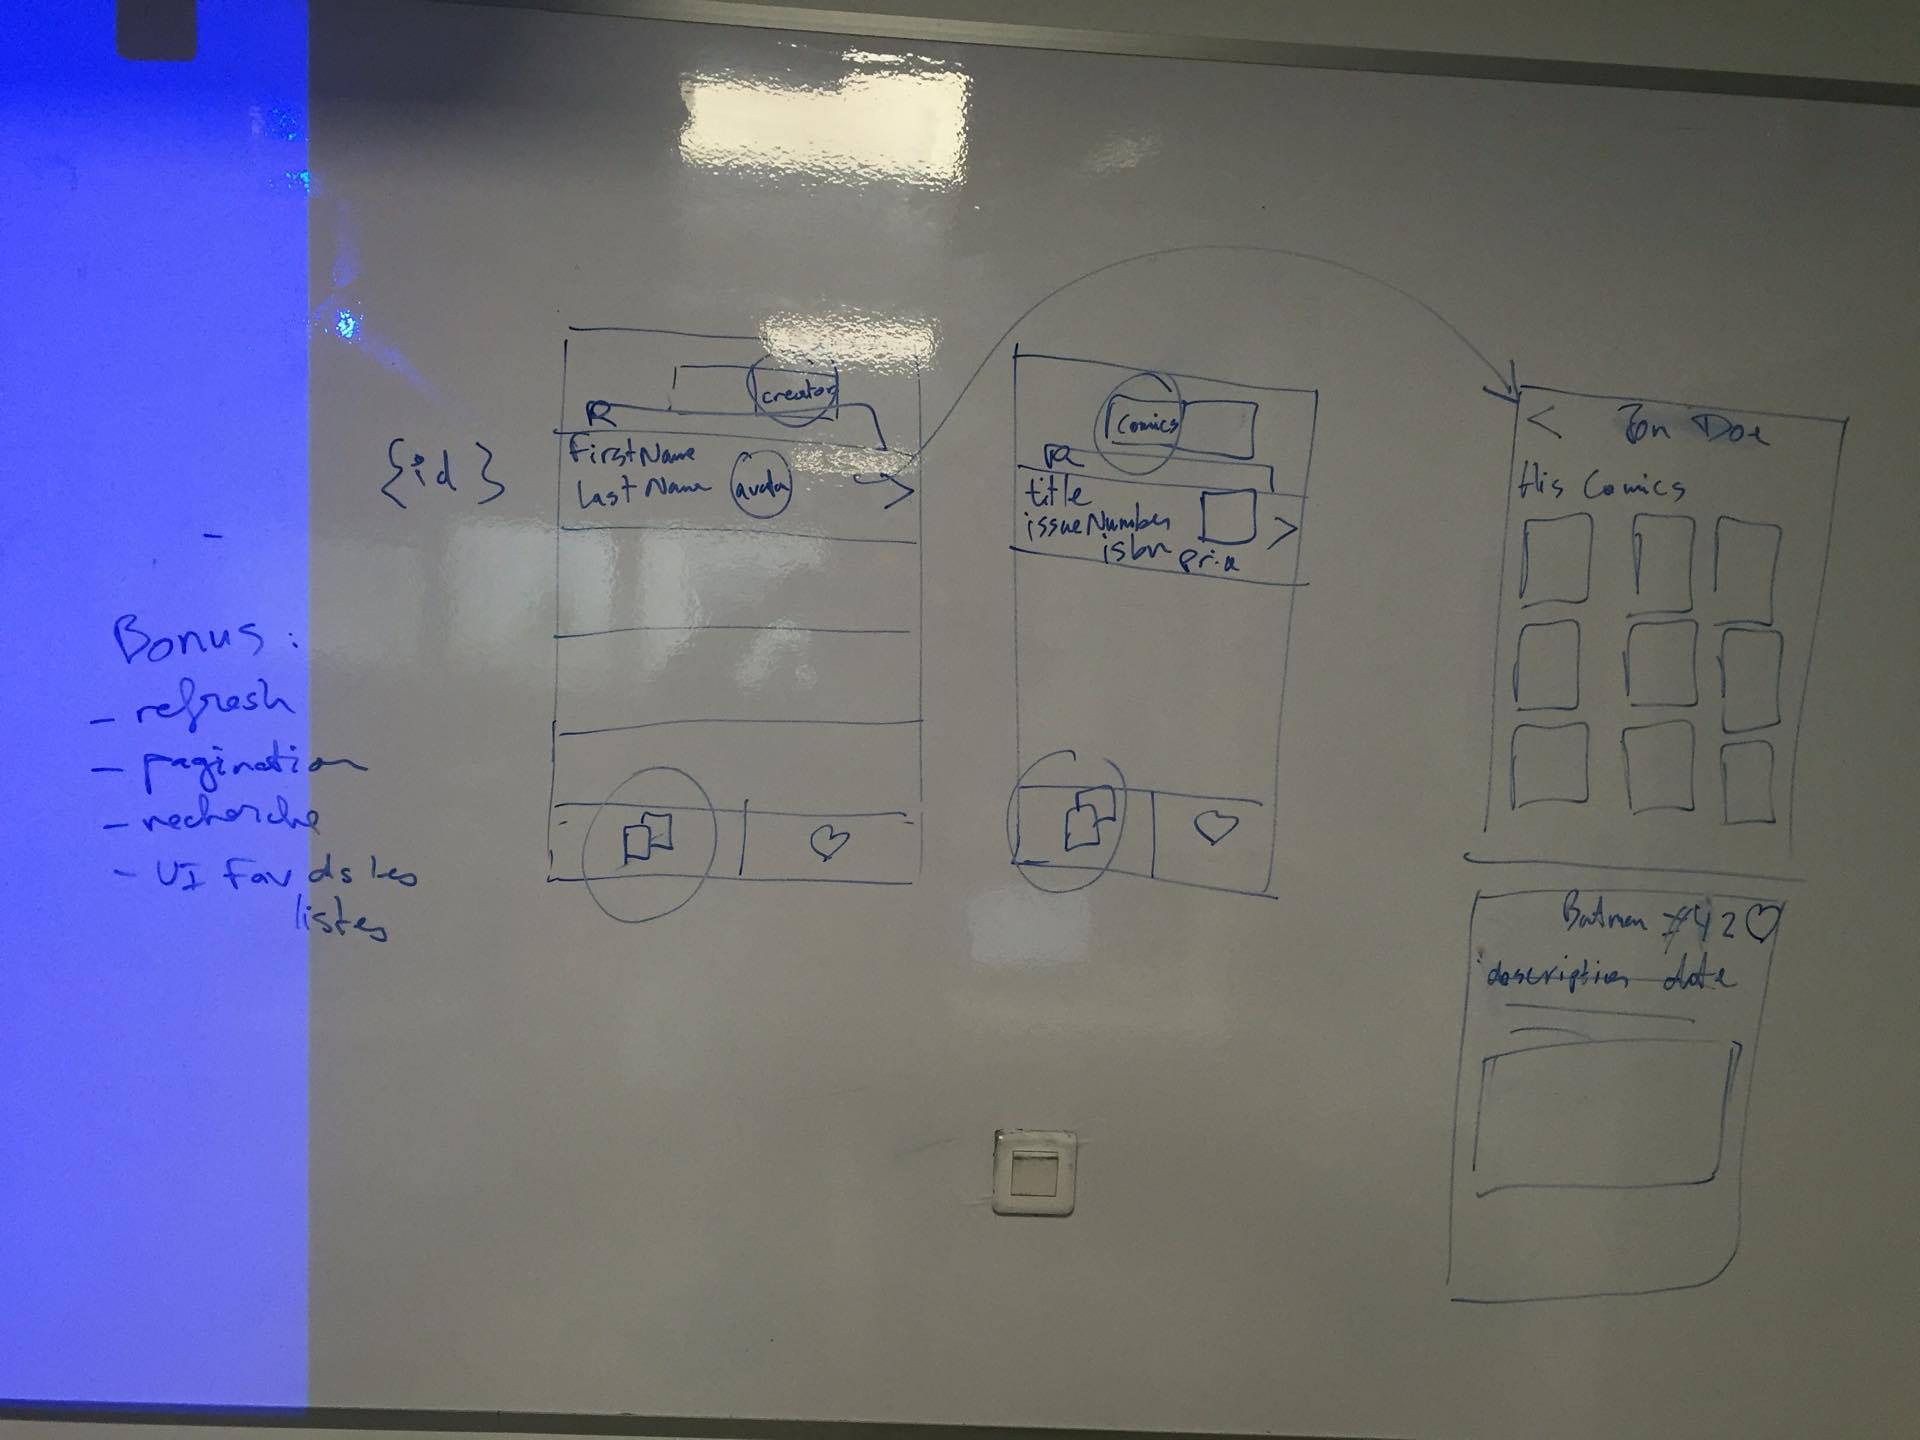 Bonus :
- refresh
- pagination
- recherche
- UI Fav ds les
listes
{id}
creator
R
FirstName
Last Name
avata
>
Comics
title
issueNumber
isbn
>
< Doe
His Comics
Batman #42
description date